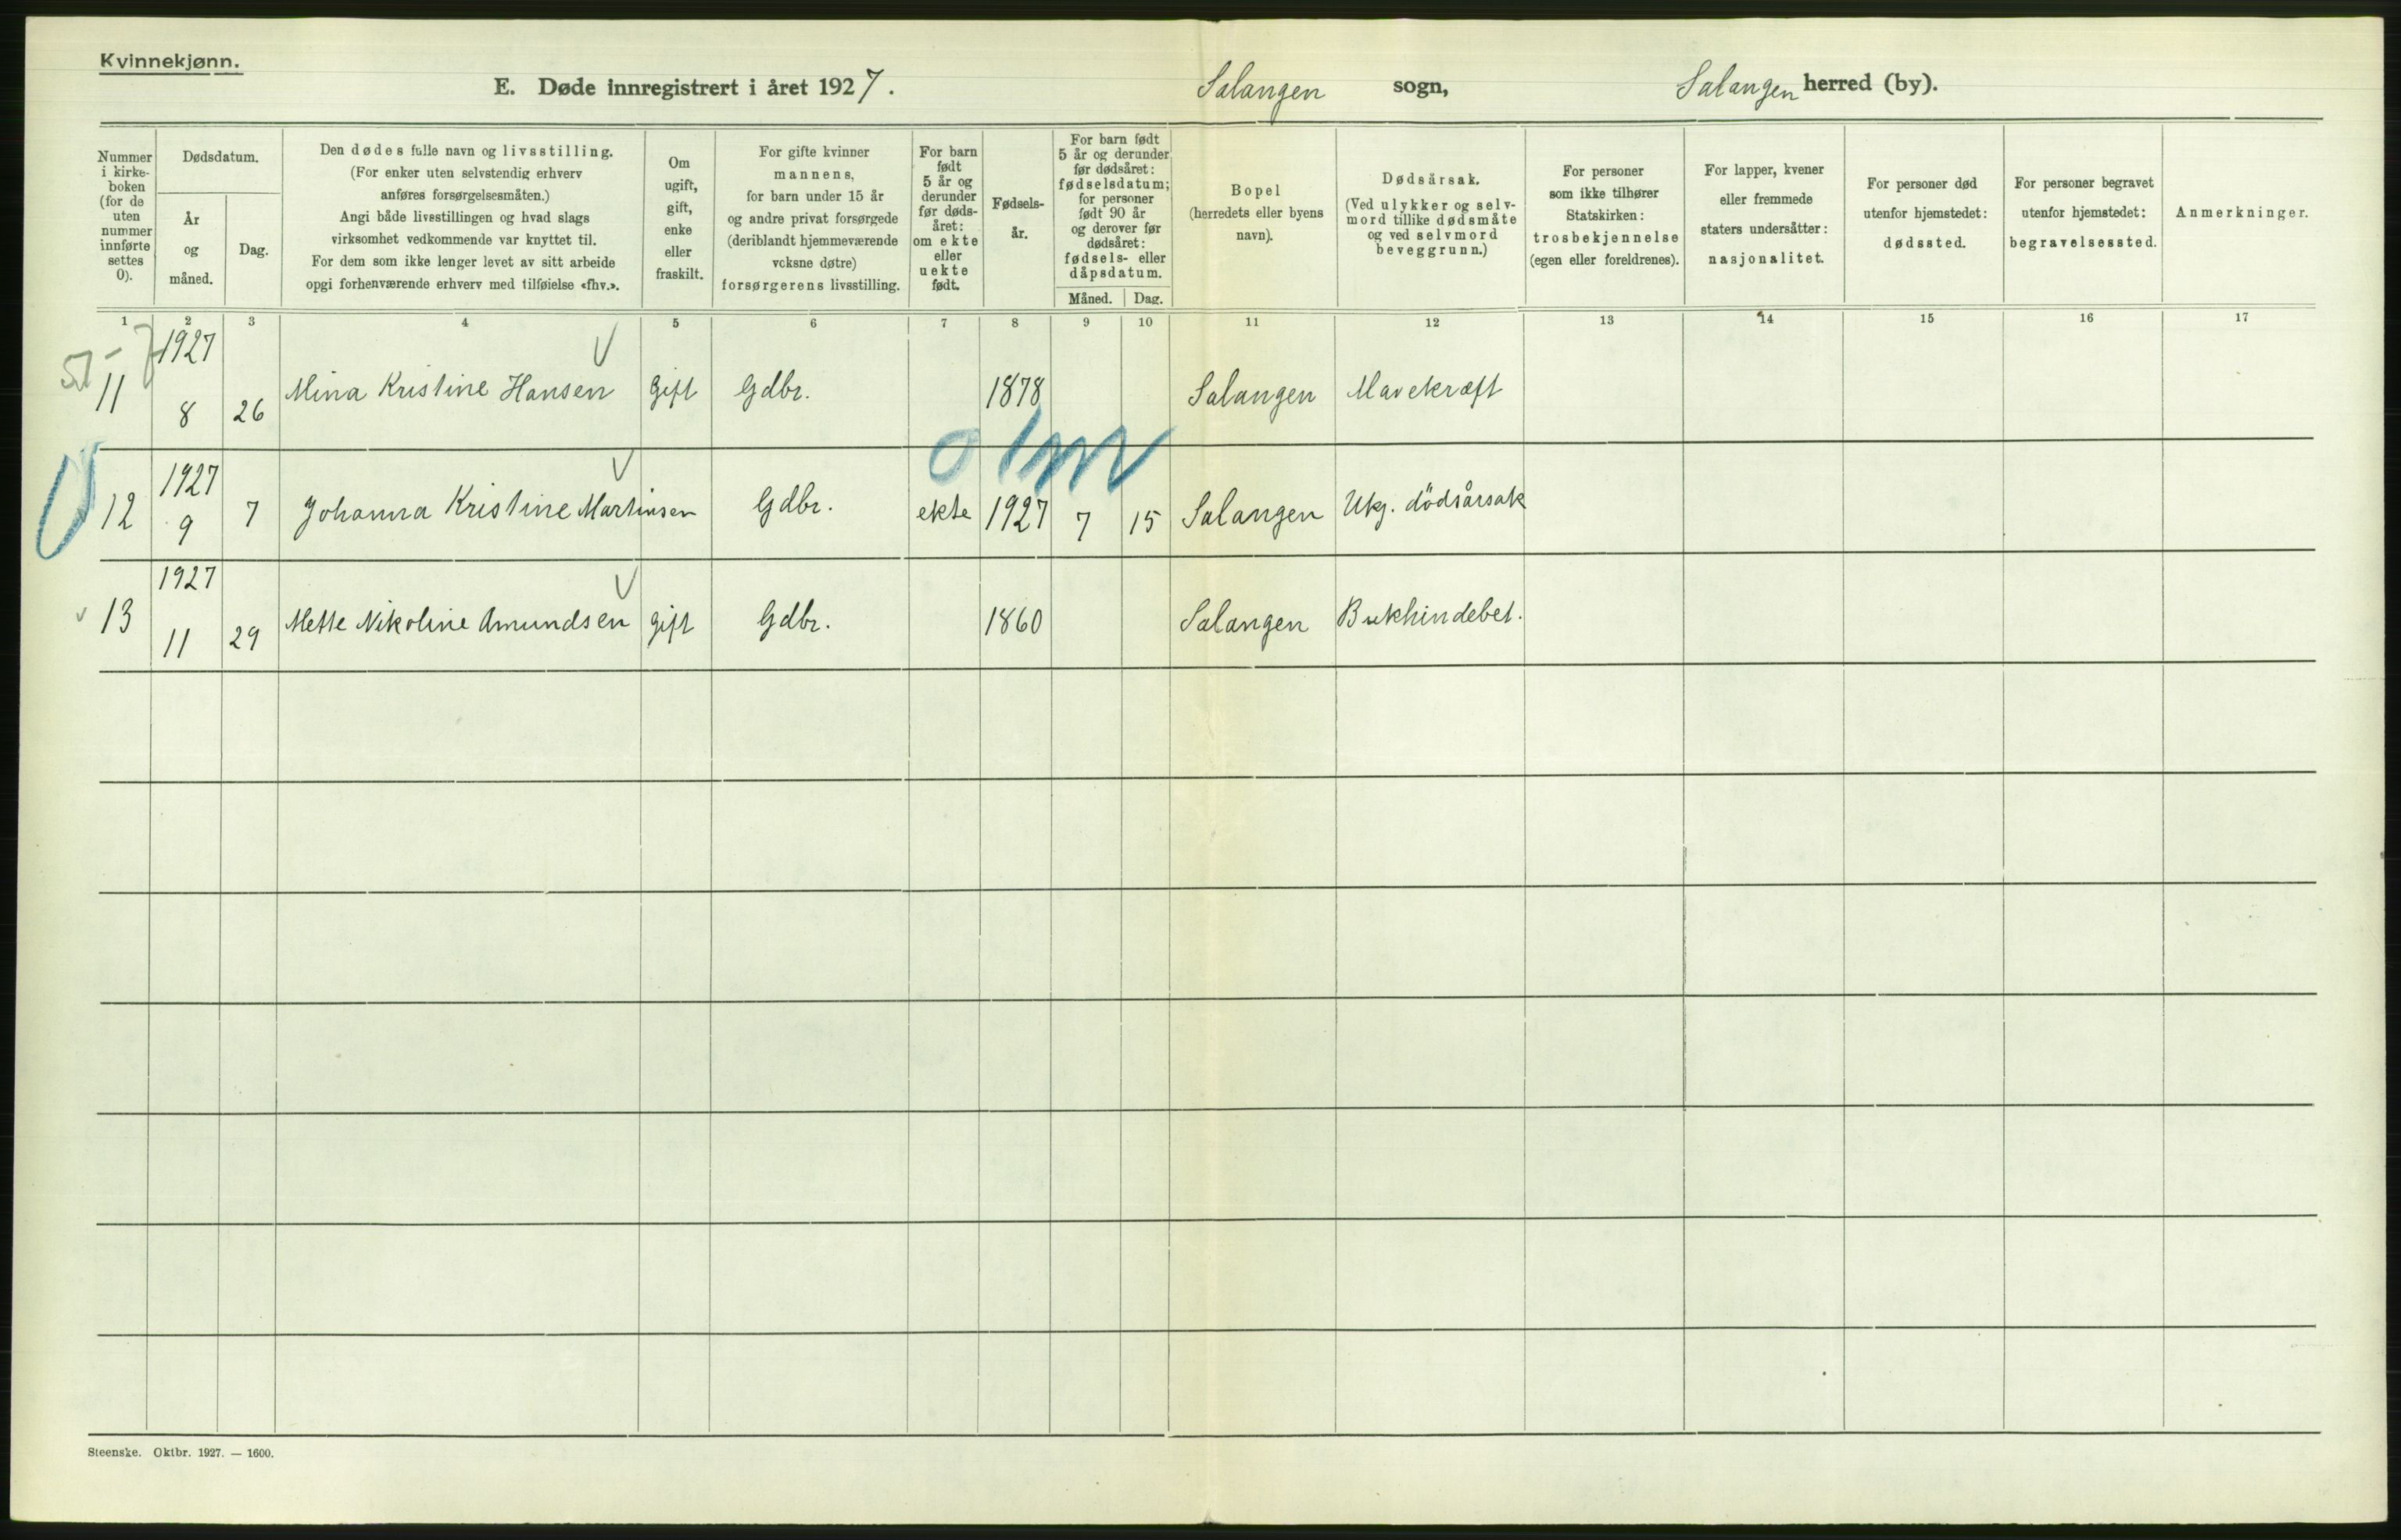 Kvinnekjønn.
E. Døde innregistrert i året 1927. Salangen sogn, Salangen herred (by).
Nummer i kirke- boken (for de uten nummer innførte settes 0).
Dødsdatum.
År og måned.
Dag.
Den dødes fulle navn og livsstilling.
(For enker uten selvstendig erhverv
anføres forsørgelsesmåten.)
Angi både livsstillingen og hvad slags
virksomhet vedkommende var knyttet til.
For dem som ikke lenger levet av sitt arbeide
opgi forhenværende erhverv med tilføielse «fhv.».
Om
ugift,
gift,
enke
eller
fraskilt.
For gifte kvinner
mannens,
for barn under 15 år
og andre privat forsørgede
(deriblandt hjemmeværende
voksne døtre)
forsørgerens livsstilling.
For barn
født
5 år og
derunder
før døds-
året:
om ekte
eller
uekte
født.
Fødsels-
år.
For barn født
5 år og derunder
før dødsåret:
fødselsdatum;
for personer
født 90 år
og derover før
dødsåret:
fødsels- eller
dåpsdatum.
Måned. Dag.
Bopel
(herredets eller byens
navn).
Dødsårsak.
(Ved ulykker og selv-
mord tillike dødsmåte
og ved selvmord
beveggrunn.)
For personer
som ikke tilhører
Statskirken:
trosbekjennelse
(egen eller foreldrenes).
For lapper, kvener
eller fremmede
staters undersåtter:
nasjonalitet.
For personer død
utenfor hjemstedet:
dødssted.
For personer begravet
utenfor hjemstedet:
begravelsessted.
Anmerkninger.
1 2 3 4 5 6 7 8 9 10 11 12 13 14 15 16 17
1927
11 8 26 Mina Kristine Hansen gift Gdbr. 1878 Salangen Mavekræft
1927
12 9 7 Johanna Kristine Martinsen Gdbr. ekte 1927 7 15 Salangen Ukj. dödsårsak
1927
13 11 29 Mette Nikoline Amundsen gift Gdbr. 1860 Salangen Bukhindebet.
Steenske. Oktbr. 1927. — 1600.